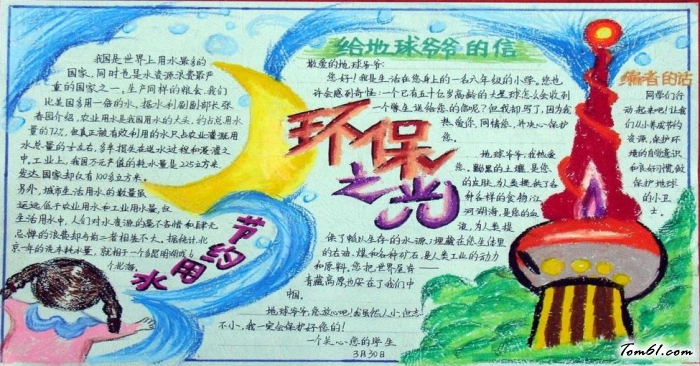 环保之光
节约用水
我国是世界上用水最多的
国家,同时也是水资源浪费最严
重的国家之一,生产同样的粮食,我们
比美国多用一倍的水,据水利部副部长张
春园介绍,农业用水是我国用水的大头,约占总用水
量的72%,但真正被有效利用的水只占农业灌溉用
水总量的
工业上,我国万元产值的耗水量是225立方米,
发达国家却仅有100立方米。
另外,城市生活用水的数量虽
远远低于农业用水和工业用水量,但
生活用水中,人们对水资源的毫不吝惜和肆无
忌惮的浪费却与前二者相差不大。据统计,北
京一年的洗车耗水量,就相当一个多昆明湖或6
个北海。
给地球爷爷的信
敬爱的地球爷爷:
您好!我是生活在您身上的一名六年级的小学,您也
许会感到奇怪:一个已有五十亿岁高龄的大星球怎么会收到
一个学生送给您的信呢?但我却写了,因为我
热爱你,同情您,并决心保护
您。
地球爷爷,我热爱
您。黝黑的土壤是您
的皮肤,为人类提供了各
种各样的食物;江
河湖海,是您的血
液,为人类提
供了赖以生存的水源;埋藏在您身体里
的石油、煤和各种矿石,是人类工业的动力
和原料。您把世界屋脊——
青藏高原也安在了我们中
国。
地球爷爷,您放心吧!我虽然人小,但志
不小,我一定会保护好您的!
一个关心您的学生
3月30日
编者的话
同学们行
动起来吧!让我
们从小养成节约
资源,保护环
境的自觉意识
和良好习惯,做
保护地球
的小卫
士。
Tom61.com